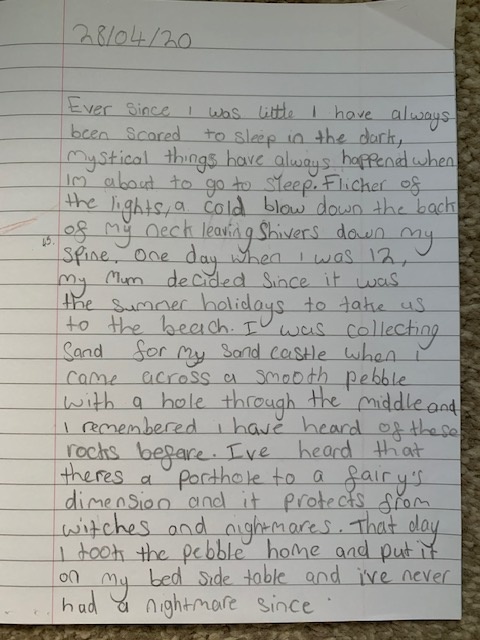 28/04/20
Ever since i was little I have always
been scared to sleep in the dark,
mystical things have always happened when
im about to go to sleep. Flicher of
the lights, a cold blow down the back
of my neck leaving shivers down my
spine. One day when i was 12,
my mum decided since it was
the summer holidays to take us
to the beach. I was collecting
sand for my sand castle when i
came across a smooth pebble
with a hole through the middle and
i remembered i have heard of these
rocks before. I've heard that
theres a porthole to a fairy's
dimension and it protects from
witches and nightmares. That day
I took the pebble home and put it
on my bed side table and i've never
had a nightmare since.